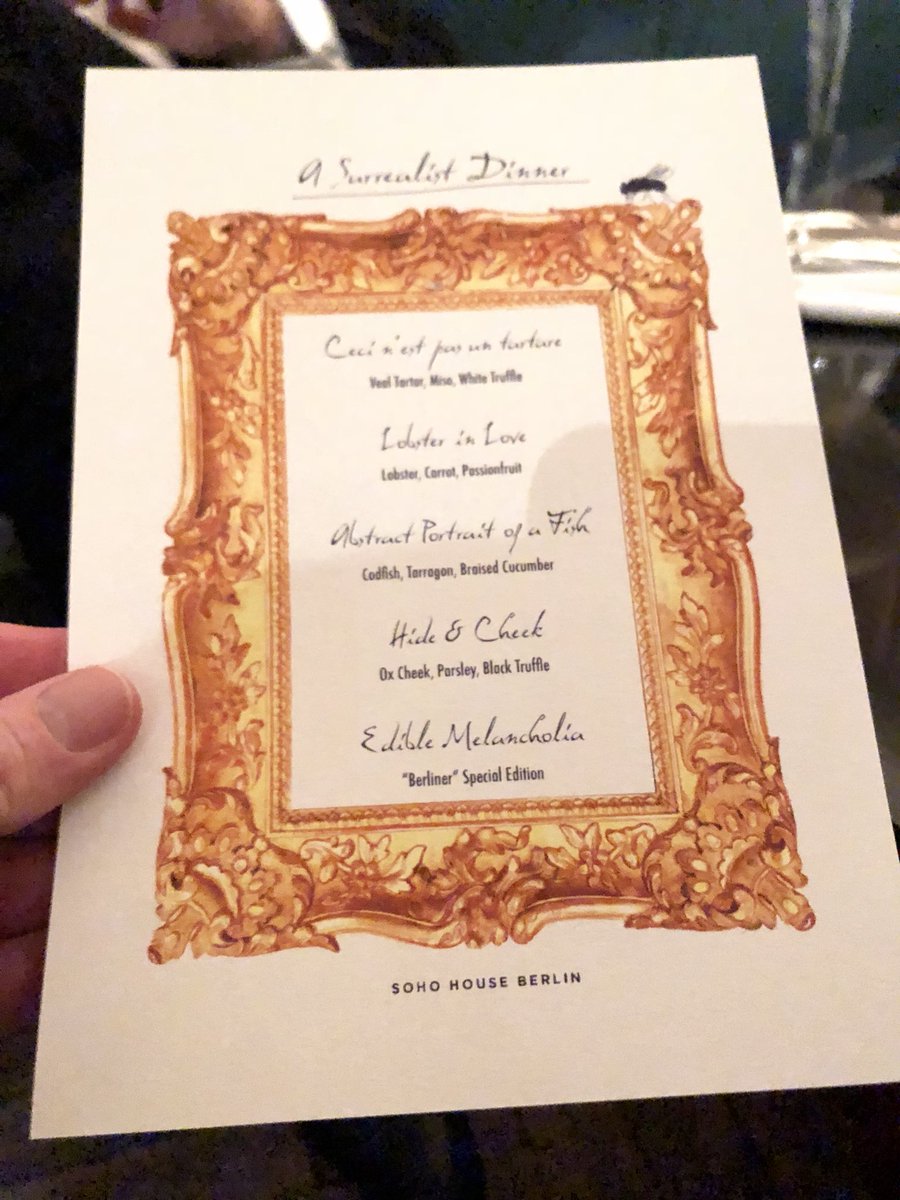 A Surrealist Dinner
Ceci n'est pas un tartare
Veal Tartar, Miso, White Truffle
Lobster in Love
Lobster, Carrot, Passionfruit
Abstract Portrait of a Fish
Codfish, Tarragon, Braised Cucumber
Hide & Cheek
Ox Cheek, Parsley, Black Truffle
Edible Melancholia
"Berliner" Special Edition
SOHO HOUSE BERLIN